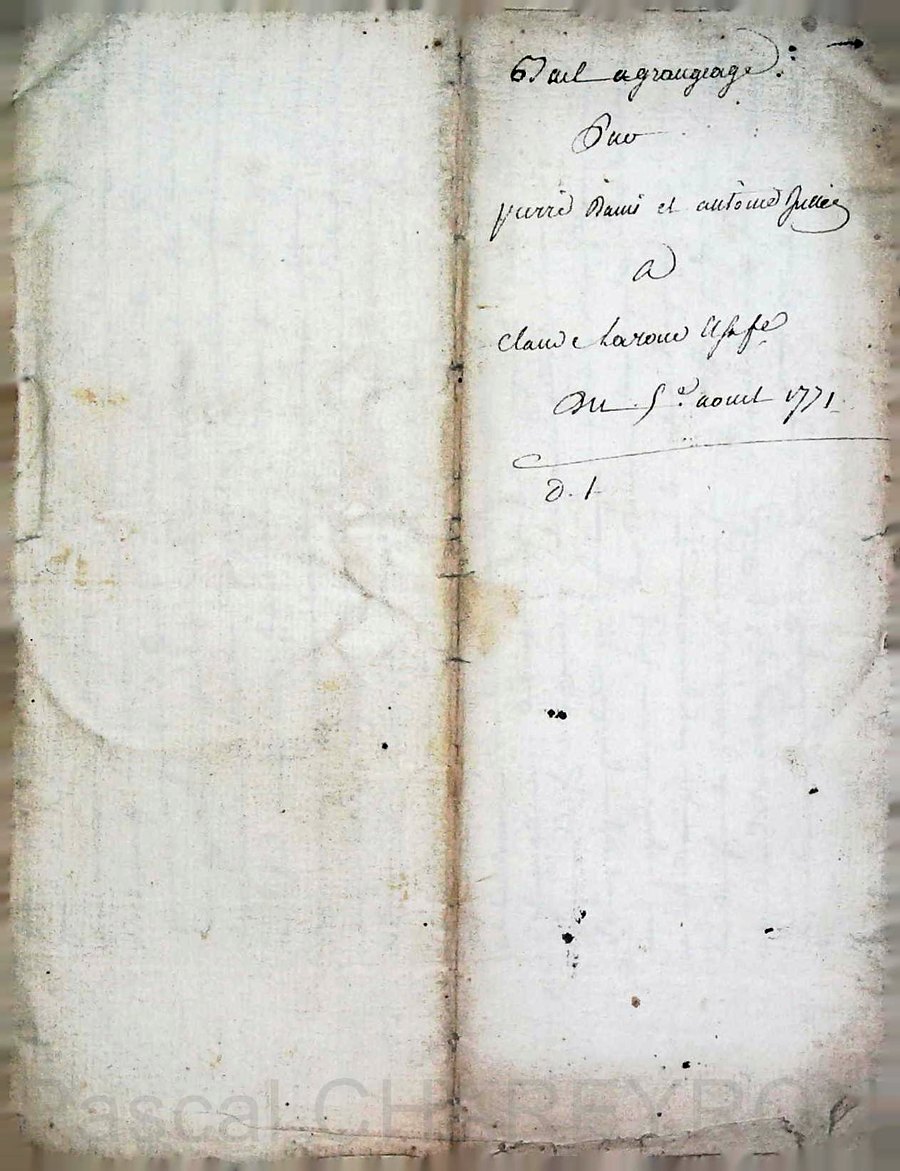 Bail agrangeage
Par
pierre Dami et antoine Jullien
A
Claude
Du 5e. aout 1771
d. 1
Pascal CHAREYRON